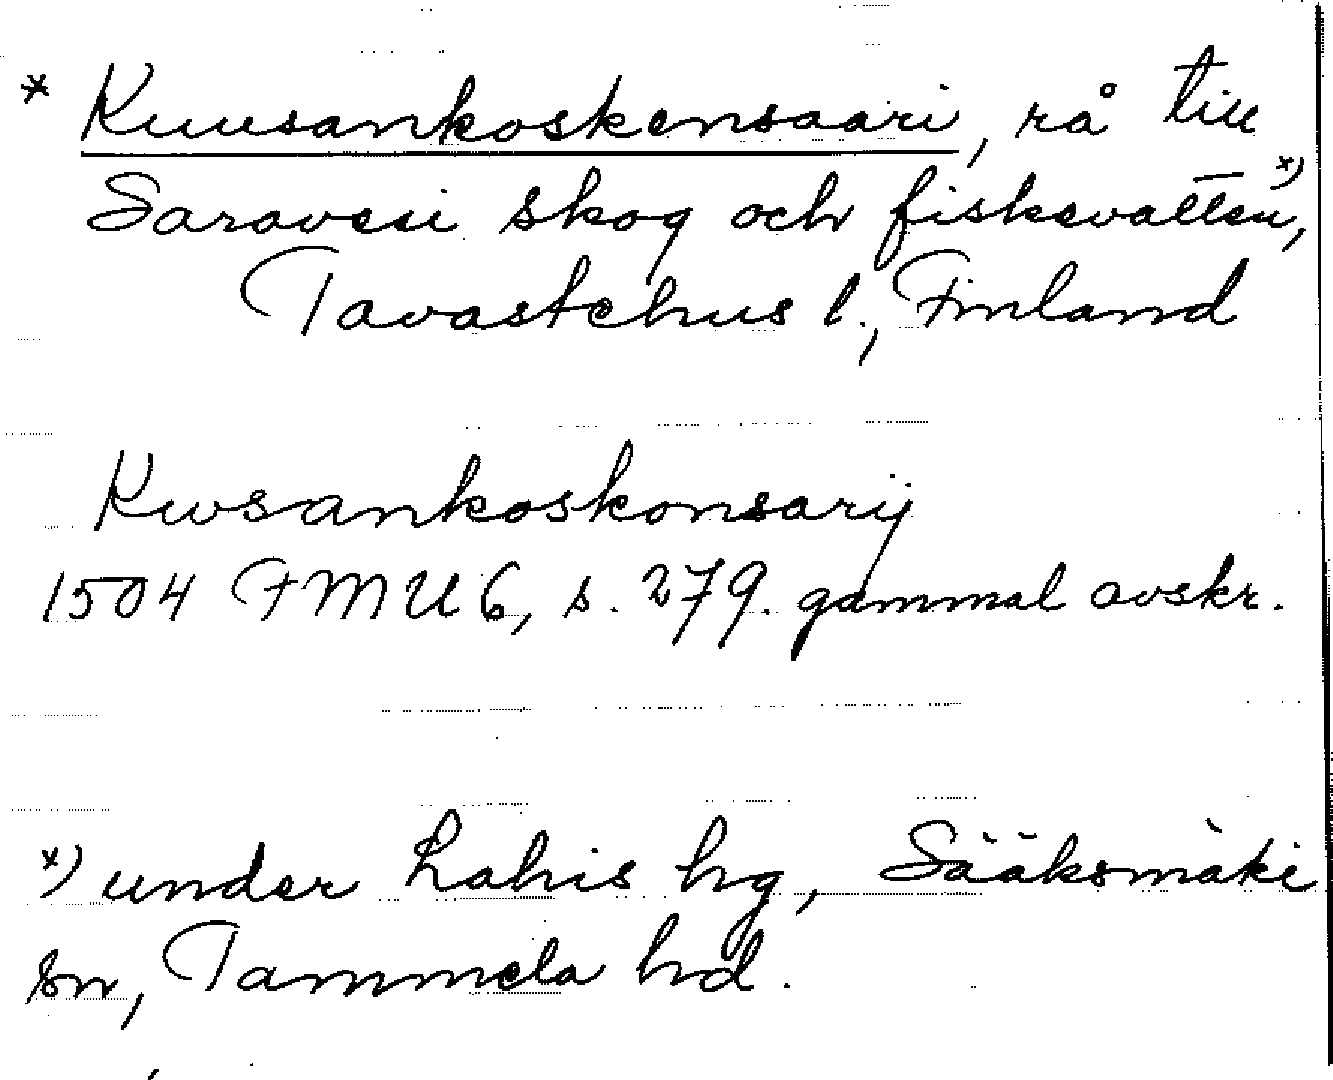 * Kuusankoskensaari, rå till
Saravesi skog och fiskevatten*),
Tavastehus l., Finland
Kwsankoskonsarij
1504 FMU 6, s. 279. gammal avskr.
*) under Lahis hg, Sääksmäki
sn, Tammela hd.